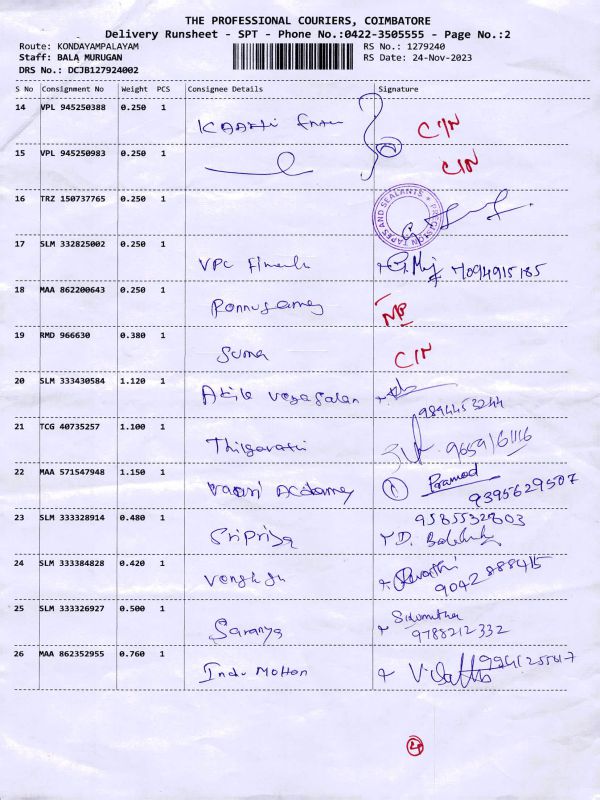 THE PROFESSIONAL COURIERS, COIMBATORE
Delivery Runsheet - SPT - Phone No.:0422-3505555 - Page No.:2
Route: KONDAYAMPALAYAM RS No.: 1279240
Staff: BALA MURUGAN RS Date: 24-Nov-2023
DRS No.: DCJB127924002
S No Consignment No Weight PCS Consignee Details Signature
14 VPL 945250388 0.250 1
C/N
15 VPL 945250983 0.250 1
C/N
16 TRZ 150737765 0.250 1
PRECISION TAPES AND SEALANTS
17 SLM 332825002 0.250 1
VPC 7094915185
18 MAA 862200643 0.250 1
Ponnusamy
19 RMD 966630 0.380 1
Suma C/N
20 SLM 333430584 1.120 1
Akila
9894453244
21 TCG 40735257 1.100 1
22 MAA 571547948 1.150 1
Pramod
9395629507
23 SLM 333328914 0.480 1
Sripriya
24 SLM 333384828 0.420 1
9042888415
25 SLM 333326927 0.500 1
Saranya
9788212332
26 MAA 862352955 0.760 1
Indu Mohan